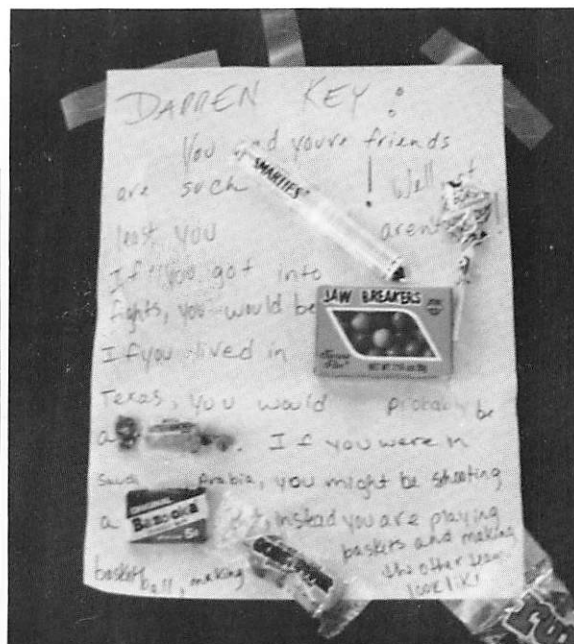 DARREN KEY:
You and you're friends
are such SMARTIES ! Well at
least you aren't !
If you got into
fights, you would be JAW BREAKERS
If you lived in
Texas, you would probably be
a . If you were in
Saudi Arabia, you might be shooting
a Bazooka 5¢ but, instead you are playing
basketball, making baskets and making
the other team
look like